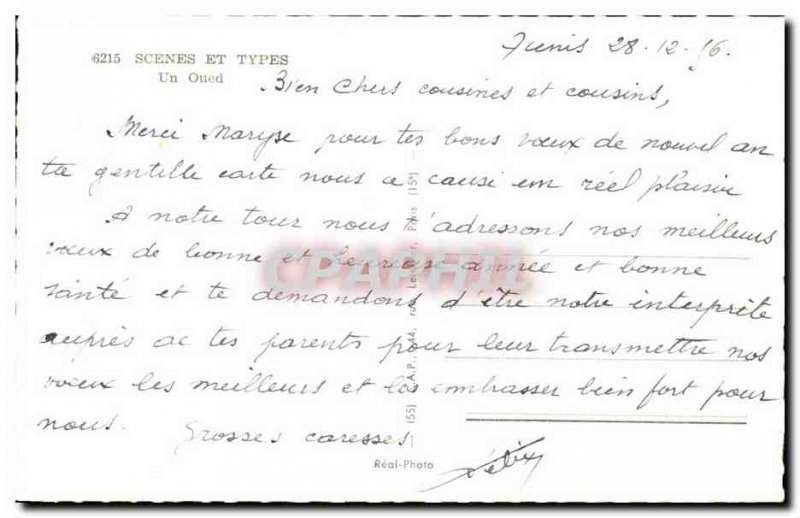 6215 SCENES ET TYPES
Un Oued
Tunis 28.12.56.
Bien Chers cousines et cousins,
Merci Maryse pour tes bons vœux de nouvel an
ta gentille carte nous a causé un réel plaisir
A notre tour nous t'adressons nos meilleurs
vœux de bonne et heureuse année et bonne
santé et te demandons d'être notre interprète
auprès de tes parents pour leur transmettre nos
vœux les meilleurs et les embrasser bien fort pour
nous. Grosses caresses
Félix
(55) C.A.P. 44, rue Paris (15e)
Réal-Photo
CPAPHIL